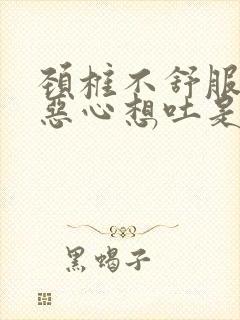 頚椎不舒服
惡心想吐是
黑蝎子